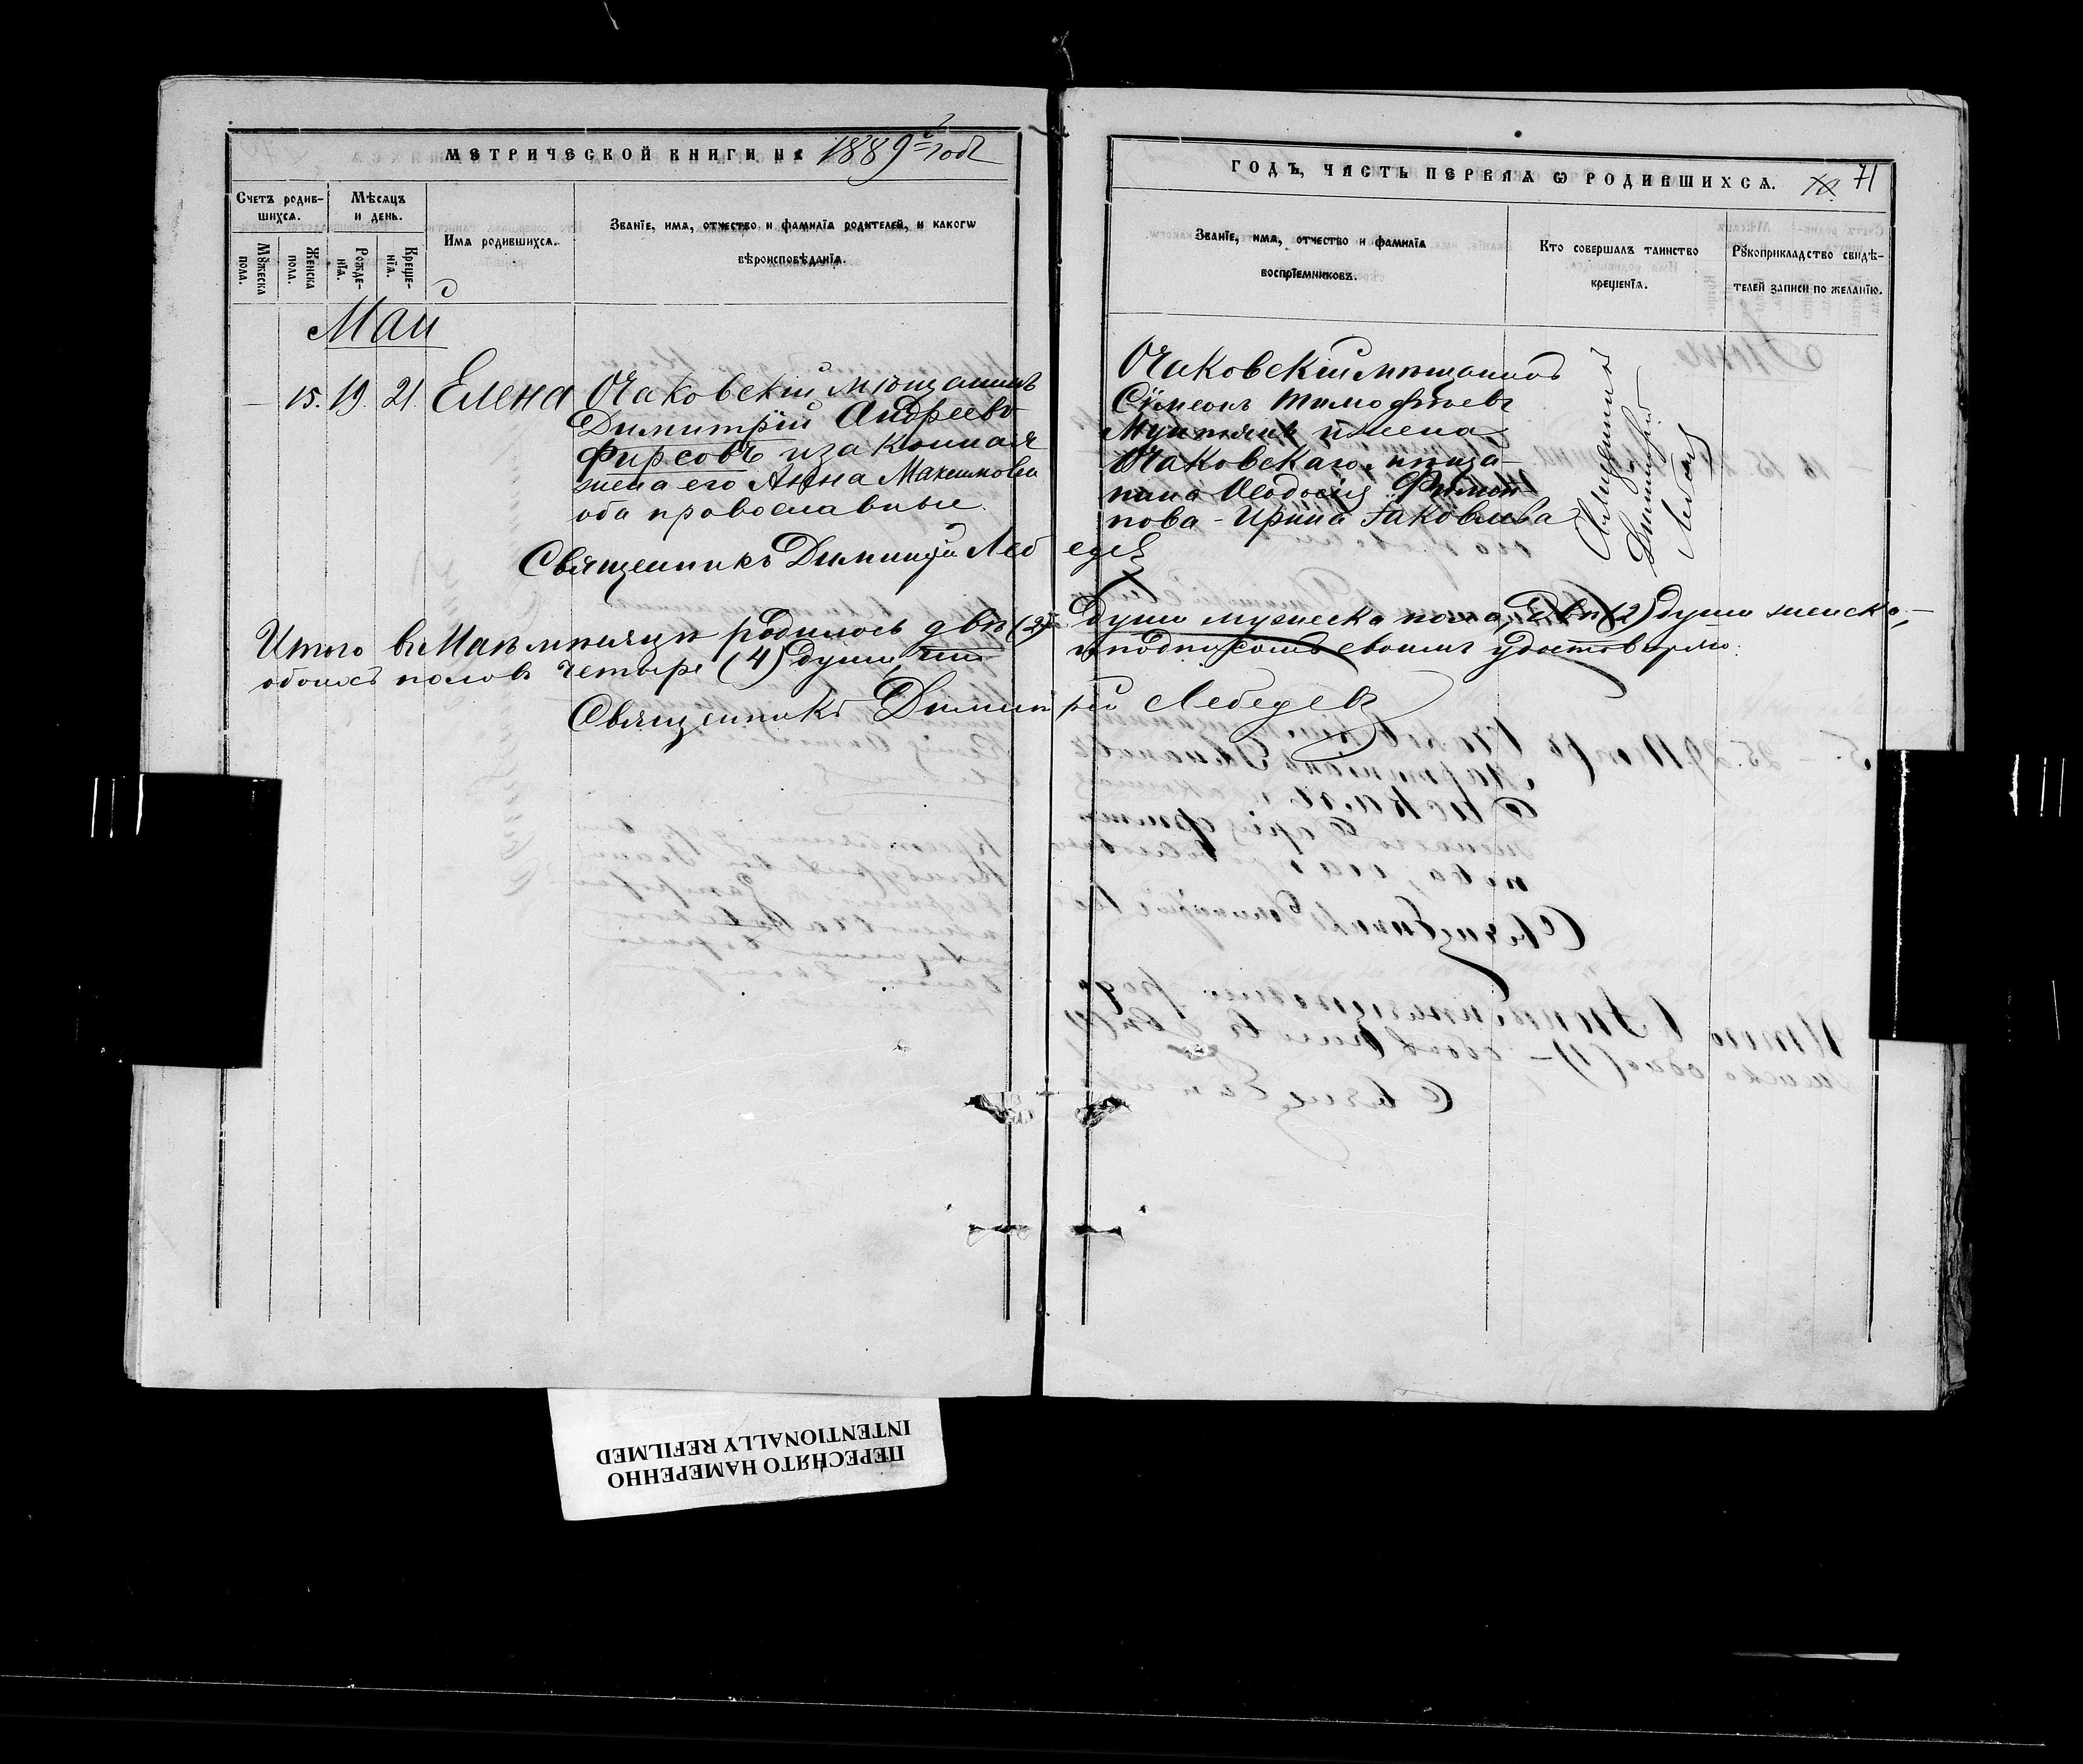 МЕТРИЧЕСКОЙ КНИГИ НА 1889й годъ
Счетъ родив-
шихся.
Мѣсяцъ
и день.
Мужеска
пола.
Женска
пола.
Рожде-
нїя.
Креще-
нїя.
Имя родившихся.
Званїе, имя, отчество и фамилїя родителей, и какогѡ
вѣроисповѣданїя.
Май
— 15. 19. 21. Елена
Очаковскій мѣщанинъ
Димитрій Андреевъ
Фирсовъ и законная
жена его Анна Максимова
оба православные.
Священникъ Димитрій Лебедев
Итого въ Маѣ мѣсяцѣ родилось двѣ (2) души мужеска пола, двѣ (2) души женска,
обоихъ половъ четыре (4) души, что и подписомъ своимъ удостовѣряю.
Священникъ Димитрій Лебедевъ
ГОДЪ, ЧАСТЬ ПЕРВАЯ Ѡ РОДИВШИХСЯ. 71
Званїе, имя, отчество и фамилїя
воспрїемниковъ.
Кто совершалъ таинство
крещенїя.
Рꙋкоприкладство свидѣ-
телей записи по желанїю.
Очаковскій мѣщанинъ
Сѵмеонъ Тимофѣевъ
Мунтянъ и жена
Очаковскаго мѣща-
нина Ѳеодосія Филип-
пова - Ирина Іаковлева
Священникъ
Димитрій
Лебедев
ПЕРЕСНЯТО НАМЕРЕННО
INTENTIONALLY REFILMED